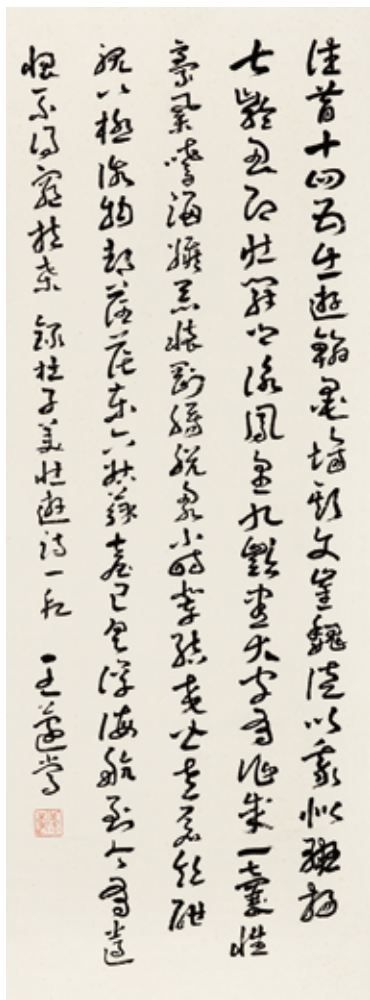 往昔十四五出遊翰墨場斯文崔魏徒以我似班揚
七齡思即壯開口詠鳳皇九齡書大字有作成一囊性
豪業嗜酒嫉惡懷剛腸脫略小時輩結交皆老蒼飲酣
視八極俗物都茫茫東下姑蘇臺已具浮海航到今有遺
恨不得窮扶桑 錄杜子美壯遊詩一 王蘧常